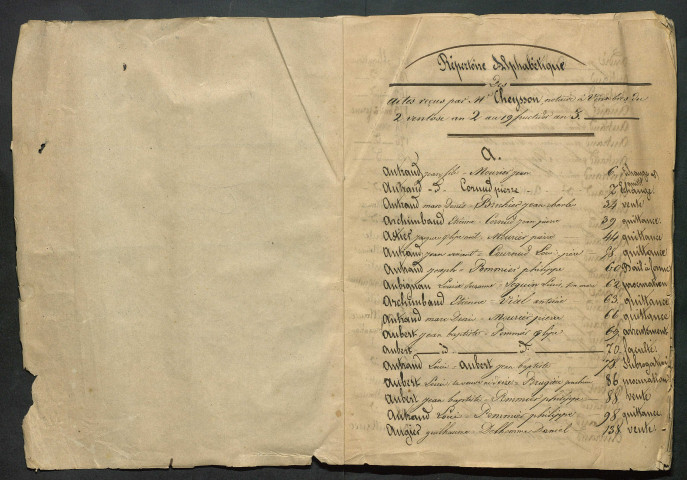 Répertoire Alphabétique
Des
actes reçus par Me Cheysson, notaire à
2 ventose an 2 au 19 fructidor an 3.
A.
Autrand jean fils = Mourier jean 6
Autrand = d° = Cornud pierre - - 7 Echange.
Autrand marc Denis = Brechier jean charles 34 vente
Archimbaud Etienne = Cornud jean pierre 39 quittance.
Astier = Mourier pierre 44 quittance
Autrand jean = Louis 58 quittance
Autrand joseph = Pommier philippe 60 Bail à ferme
Aubignan Louise Suzanne = Seguin Louis 62 procuration
Archimbaud Etienne = Vial antoine 63 quittance
Autrand marc Denis = Mourier pierre 66 quittance
Aubert jean baptiste = Pommier 69
Aubert = d° = d° 70 faculté.
Autrand Louis = Aubert jean baptiste 73 Subrogation
Aubert Louise = Brugière 86 procuration
Aubert jean baptiste = Pommier philippe = 88 vente
Autrand Louis = Pommier philippe 98 quittance
Augier guillaume = Delhomme Daniel 138 vente =